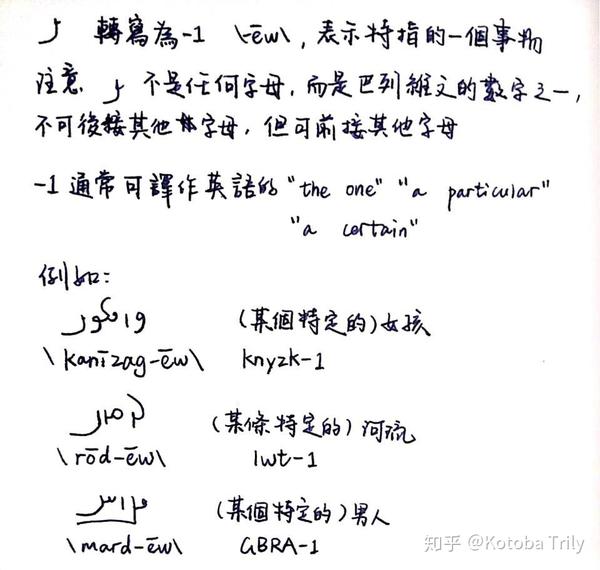 轉寫為-1 \-ēw\, 表示特指的一個事物
注意. 不是任何字母, 而是巴列維文的數字之一,
不可後接其他字母, 但可前接其他字母
-1 通常可譯作英語的 "the one" "a particular"
"a certain"
例如:
(某個特定的) 女孩
\kanīzag-ēw\ knyzk-1
(某條特定的) 河流
\rōd-ēw\ lwt-1
(某個特定的) 男人
\mard-ēw\ GBRA-1
知乎 @Kotoba Trily